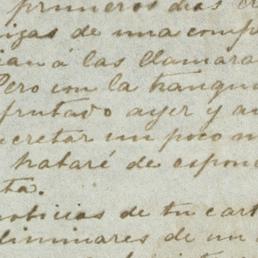 primeros dias
nizas de una comp
ian á las llamara
Pero con la tranqui
frutado ayer y an
cretar un poco m
trataré de espon
ta.
noticias de tu cart
liminares de un